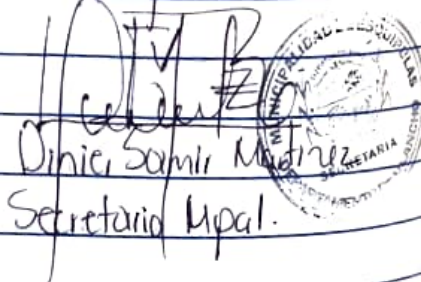 Dinier Samir Martinez
Secretario Mpal.
MUNICIPALIDAD DE ESQUIPULAS
SECRETARIA
DEPARTAMENTO